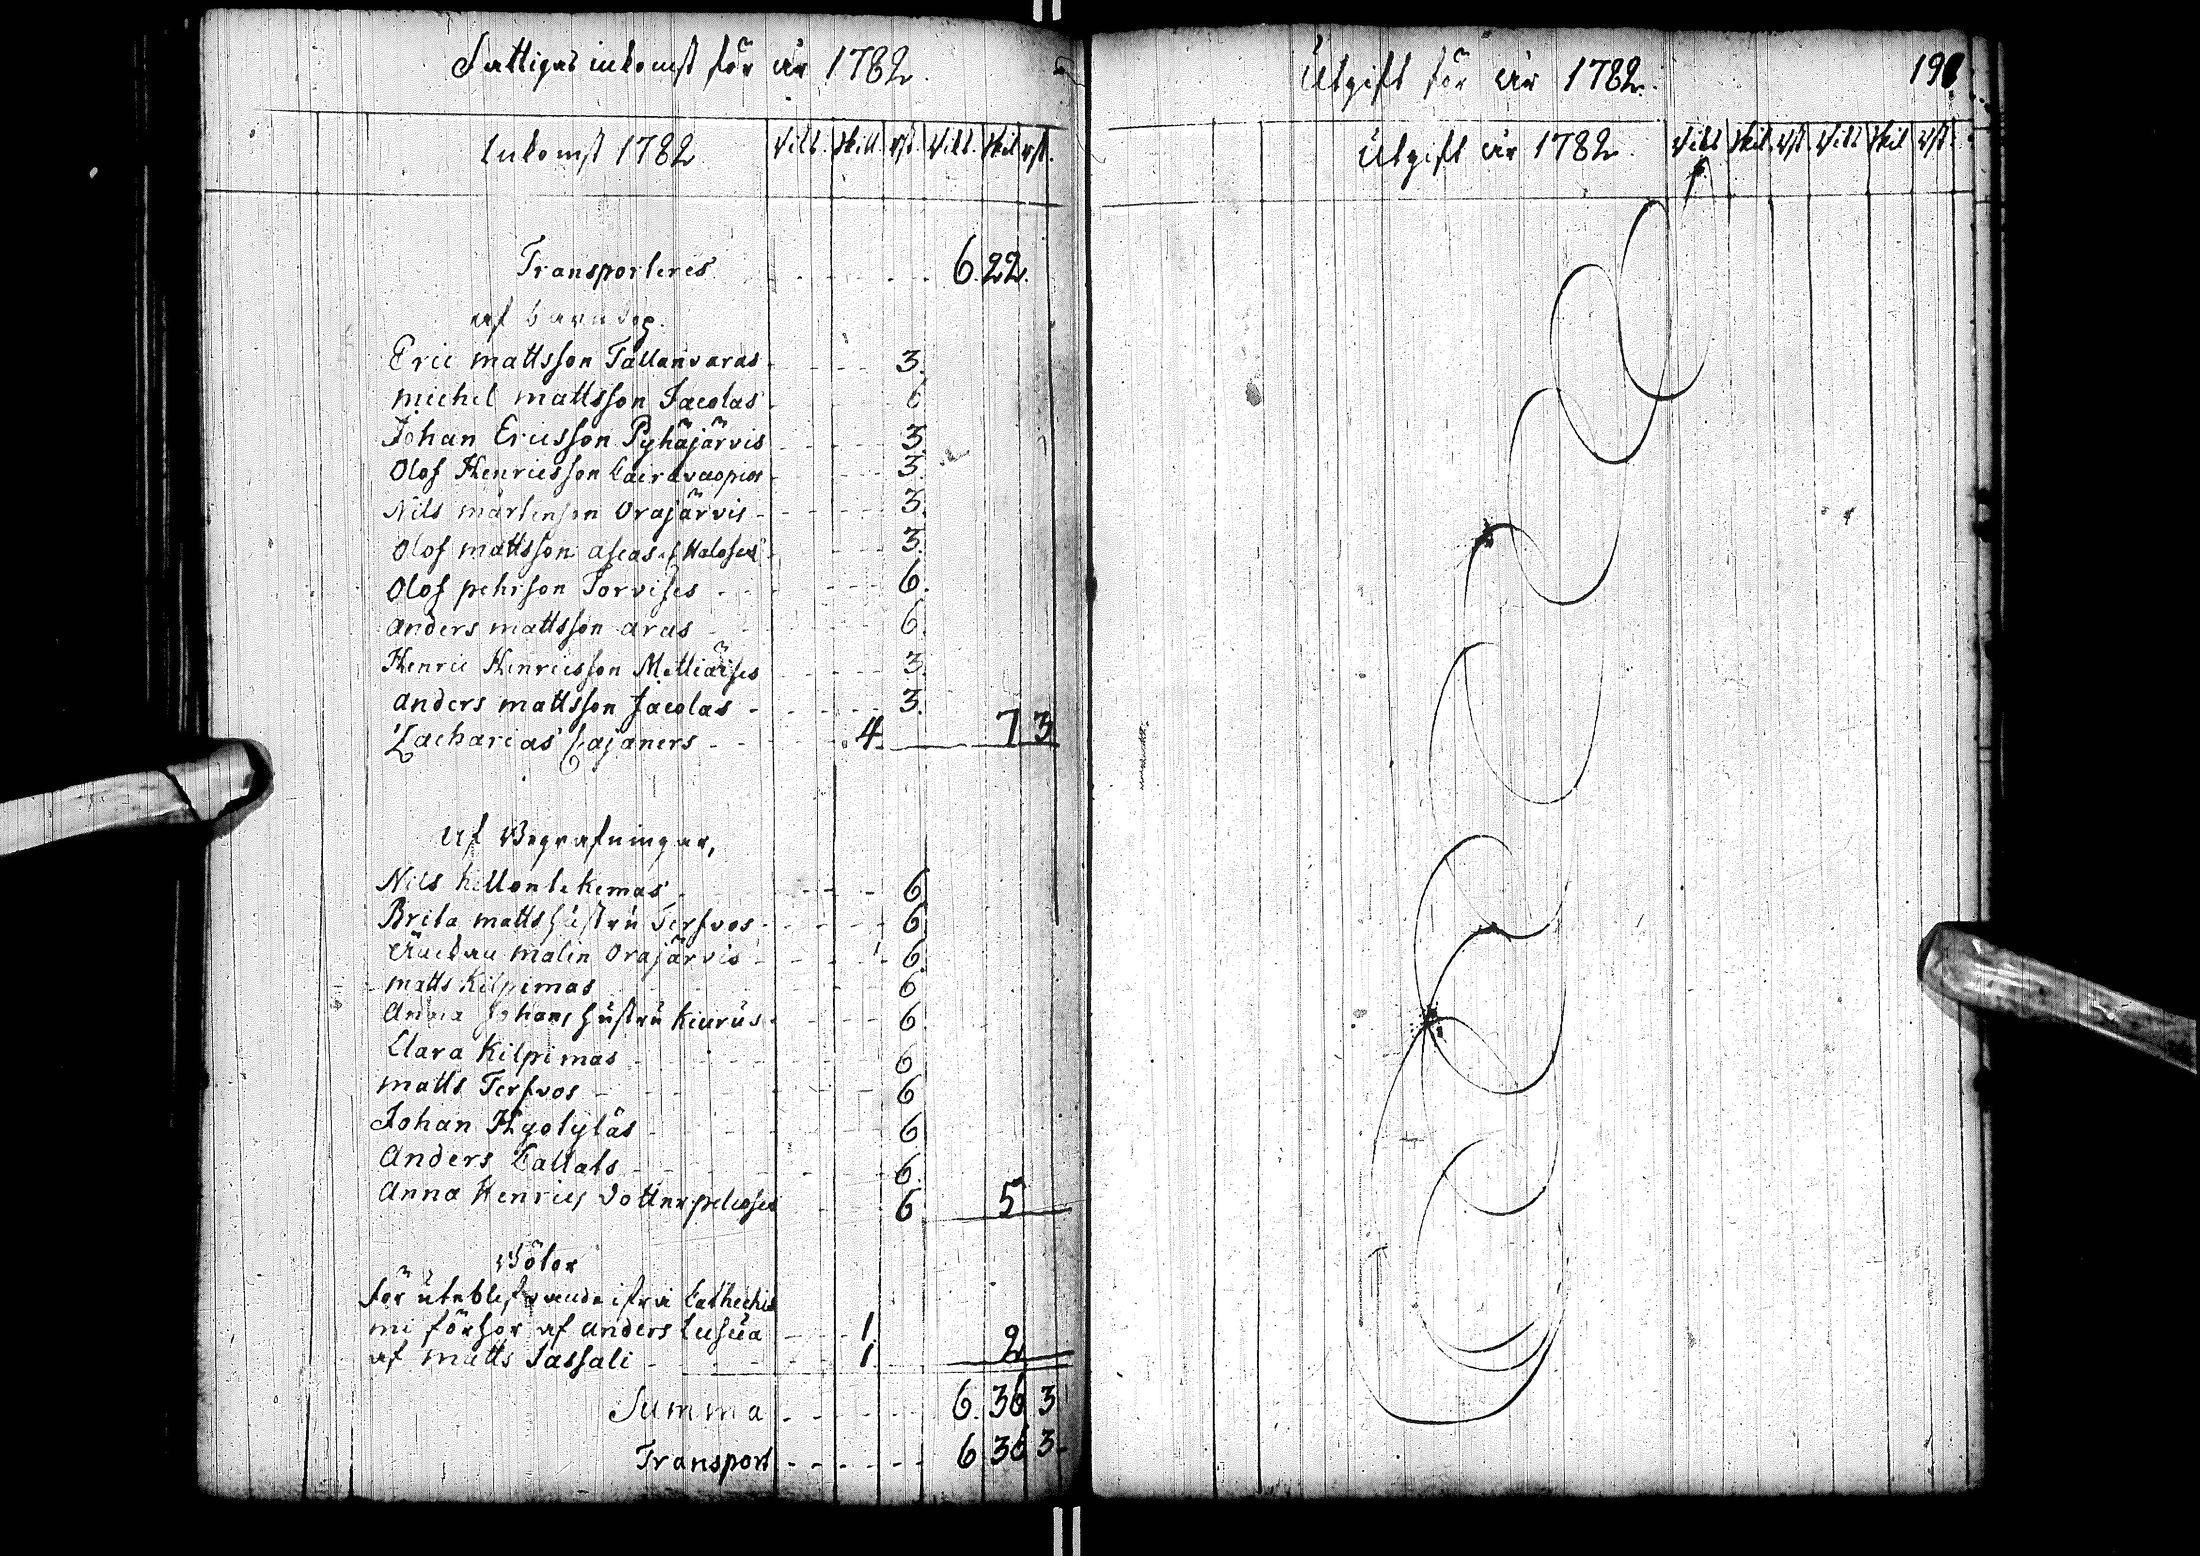 Fattigas inkomst för år 1782.
Inkomst 1782 Rikd. Skill. rst. Rikd. Skil rst.
Transporteres 6 22.
af barndop.
Eric mattsson Tallanvaras 3.
michel mattsson Jacolas 6
Johan Ericsson Pyhäjärvis 3
Olof Henricsson 3.
Nils mårtenson Orajärvis 3.
Olof mattsson 3.
Olof pehrson Torvises 6.
anders mattsson aras 6.
Henric Henricsson Mettiäises 3.
anders mattsson Jacolas 3.
Zacharias Cajaners 4. 7 3
Af Begrafningar,
Nils kellontekemas 6
Brita matts hustru Terfvos 6
Änckan malin Orajärvis 6.
matts Kilpimas 6
Anna Johans hustru kiurus 6.
Clara Kilpimas 6
matts Terfvos 6
Johan Hyötyläs 6
Anders Lallats 6.
Anna Henrics dotter 6 5
Böter
för uteblifvande ifrån Cathechis
mi förhör af anders Lusua 1
af matts Sassali 1 2
Summa 6. 36 3
Transport 6 36 3
Utgift för år 1782.
Utgift år 1782. Rikd Skil. rst. Rikd Skil rst.